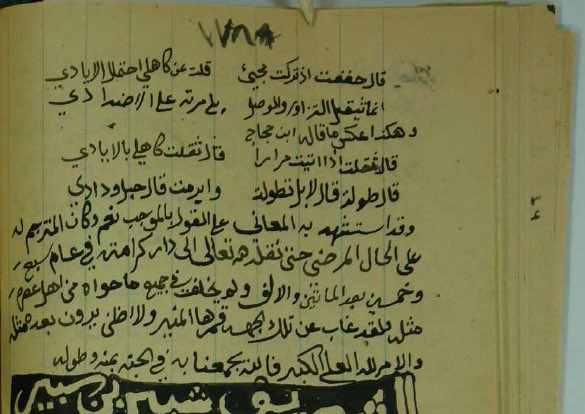 قال خففت اذ تركت مجيئى قلت عن كاهلي احتمال الايادي
انما يثقل التزاور والوصل على مرته على الاضدادي
وهكذا عكس ما قاله ابن حجاج
قال ثقلت اذا اتيت مرارا قال ثقلت كاهلي بالايادي
قال طولت قال لا بل تطولت وابرمت قال حبل ودادي
وقد استشهد به المعاني على القول بالموجب نعم وكان المترجم له
على الحال المرضي حتى نقله الله تعالى الى دار كرامته في عام سبع
وخمسين بعد المائتين والالف ولم يخلف في جميع ما حواه من اهل عصره
مثله فلقد غاب عن تلك الجهة قمرها المنير ولا اظن يرون بعده مثله
والامر لله العلي الكبير فالله يجمعنا به في الجنة بمنه وطوله